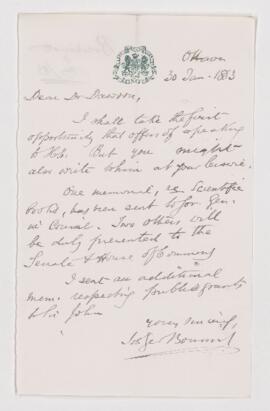 Ottawa
30 Jan. 1883
Dear Dr Dawson,
I shall take the first
opportunity that offers of speaking
to H.E. But you might
also write to him at your leisure.
One memorial, re Scientific
Books, has been sent to Gov. Gen.
in Council. Two others will
be duly presented to the
Senate & House of Commons
I sent an additional
mem. respecting public grants
to Sir John
Yours sincerely,
Bourinot